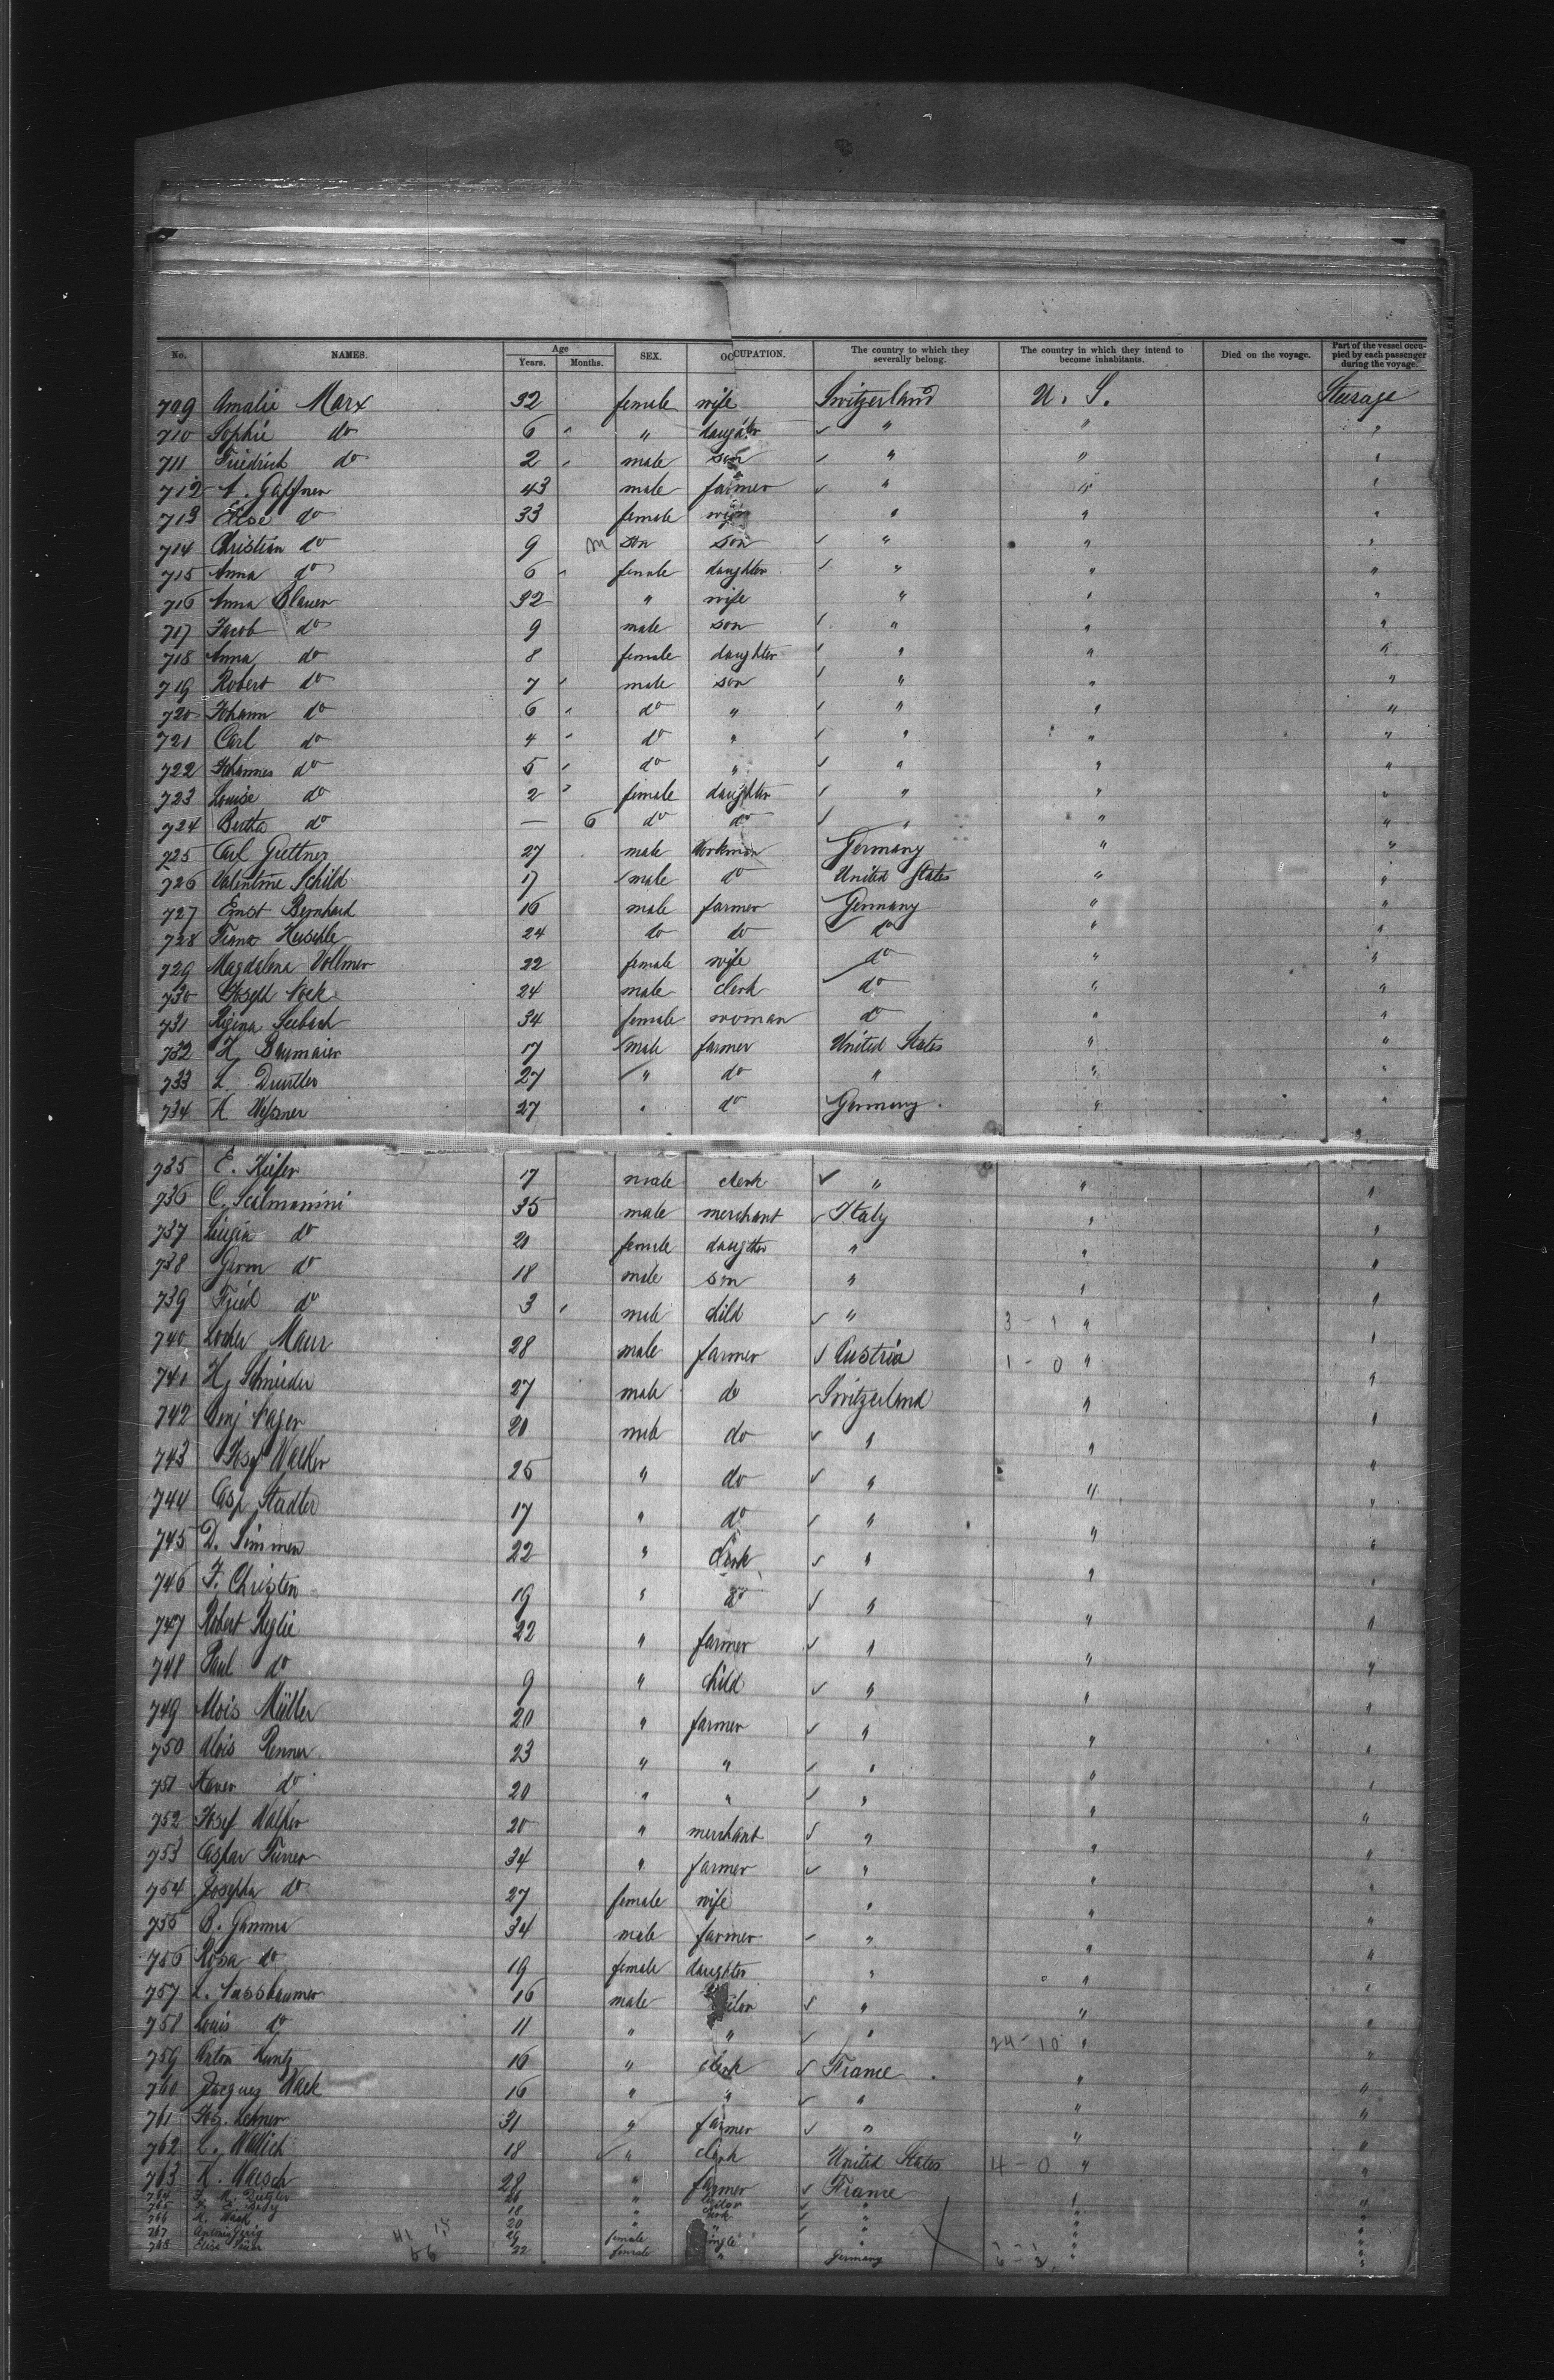 No. NAMES. Age Years. Months. SEX. OCCUPATION. The country to which they severally belong. The country in which they intend to become inhabitants. Died on the voyage. Part of the vessel occupied by each passenger during the voyage.
709 Amalie Marx 32 female wife Switzerland U. S. Steerage
710 Sophie do 6 " daughter " " "
711 Friedrich do 2 male son " " "
712 A. Gaffner 43 male farmer " " "
713 Elise do 33 female wife " " "
714 Christian do 9 m son son " " "
715 Anna do 6 female daughter " " "
716 Anna Blauer 32 " wife " " "
717 Jacob do 9 male son " " "
718 Anna do 8 female daughter " " "
719 Robert do 7 male son " " "
720 Johann do 6 do " " " "
721 Carl do 4 do " " " "
722 Johannes do 5 do " " " "
723 Louise do 2 female daughter " " "
724 Bertha do — 6 do do " " "
725 Carl Guttner 27 male Workman Germany " "
726 Valentine Schild 17 male do United States " "
727 Ernst Bernhard 16 male farmer Germany " "
728 Franz Heschle 24 do do do " "
729 Magdalena Vollmer 22 female wife do " "
730 Joseph 24 male clerk do " "
731 Regina Seebach 34 female woman do " "
732 H. Baumaier 17 male farmer United States " "
733 L. 27 " do " " "
734 K 27 " do Germany " "
735 E. Kiefer 17 male clerk " " "
736 C. Scalmanini 35 male merchant Italy " "
737 Luigia do 21 female daugtter " " "
738 do 18 male son " " "
739 do 3 male child " 3 - 1 " "
740 Locher Maur 28 male farmer Austria 1 - 0 " "
741 H. Schneider 27 male do Switzerland " "
742 Benj Nager 20 male do " " "
743 Josef Walker 25 " do " " "
744 Casp Stadler 17 " do " " "
745 D. Simmen 22 " Clerk " " "
746 F. Christen 19 " do " " "
747 Robert Reglie 22 " farmer " " "
748 Paul do 9 " child " " "
749 Alois Müller 20 " farmer " " "
750 Alois Renner 23 " " " " "
751 Xaver do 20 " " " " "
752 Josef Walker 20 " merchant " " "
753 Caspar Furrer 34 " farmer " " "
754 Josepha do 27 female wife " " "
755 B. Gamma 34 male farmer " " "
756 Rosa do 19 female daughter " " "
757 L. Nussbaumer 16 male " " "
758 Louis do 11 " " " 24 - 10 " "
759 Anton Kuntz 16 " clerk France " "
760 Jacques Wack 16 " " " " "
761 Jos. Lehner 31 " farmer " " "
762 L. Wallich 18 " clerk United States 4 - 0 " "
763 K. Waesch 28 " farmer France " "
764
765 18 " clerk " " "
766 K. Wack 20 " " " " "
767 29 female single " " "
768 Elise 22 female " Germany " "